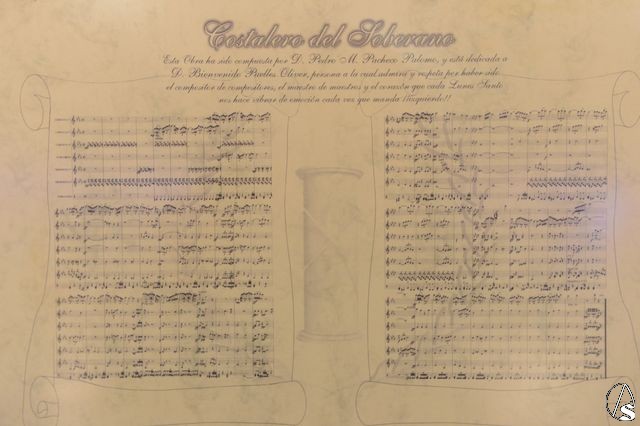 Costalero del Soberano
Esta Obra ha sido compuesta por D. Pedro M. Pacheco Palomo, y está dedicada a
D. Bienvenido Puelles Oliver, persona a la cual admira y respeta por haber sido
el compositor de compositores, el maestro de maestros y el corazón que cada Lunes Santo
nos hace vibrar de emoción cada vez que manda ¡¡izquierdo!!